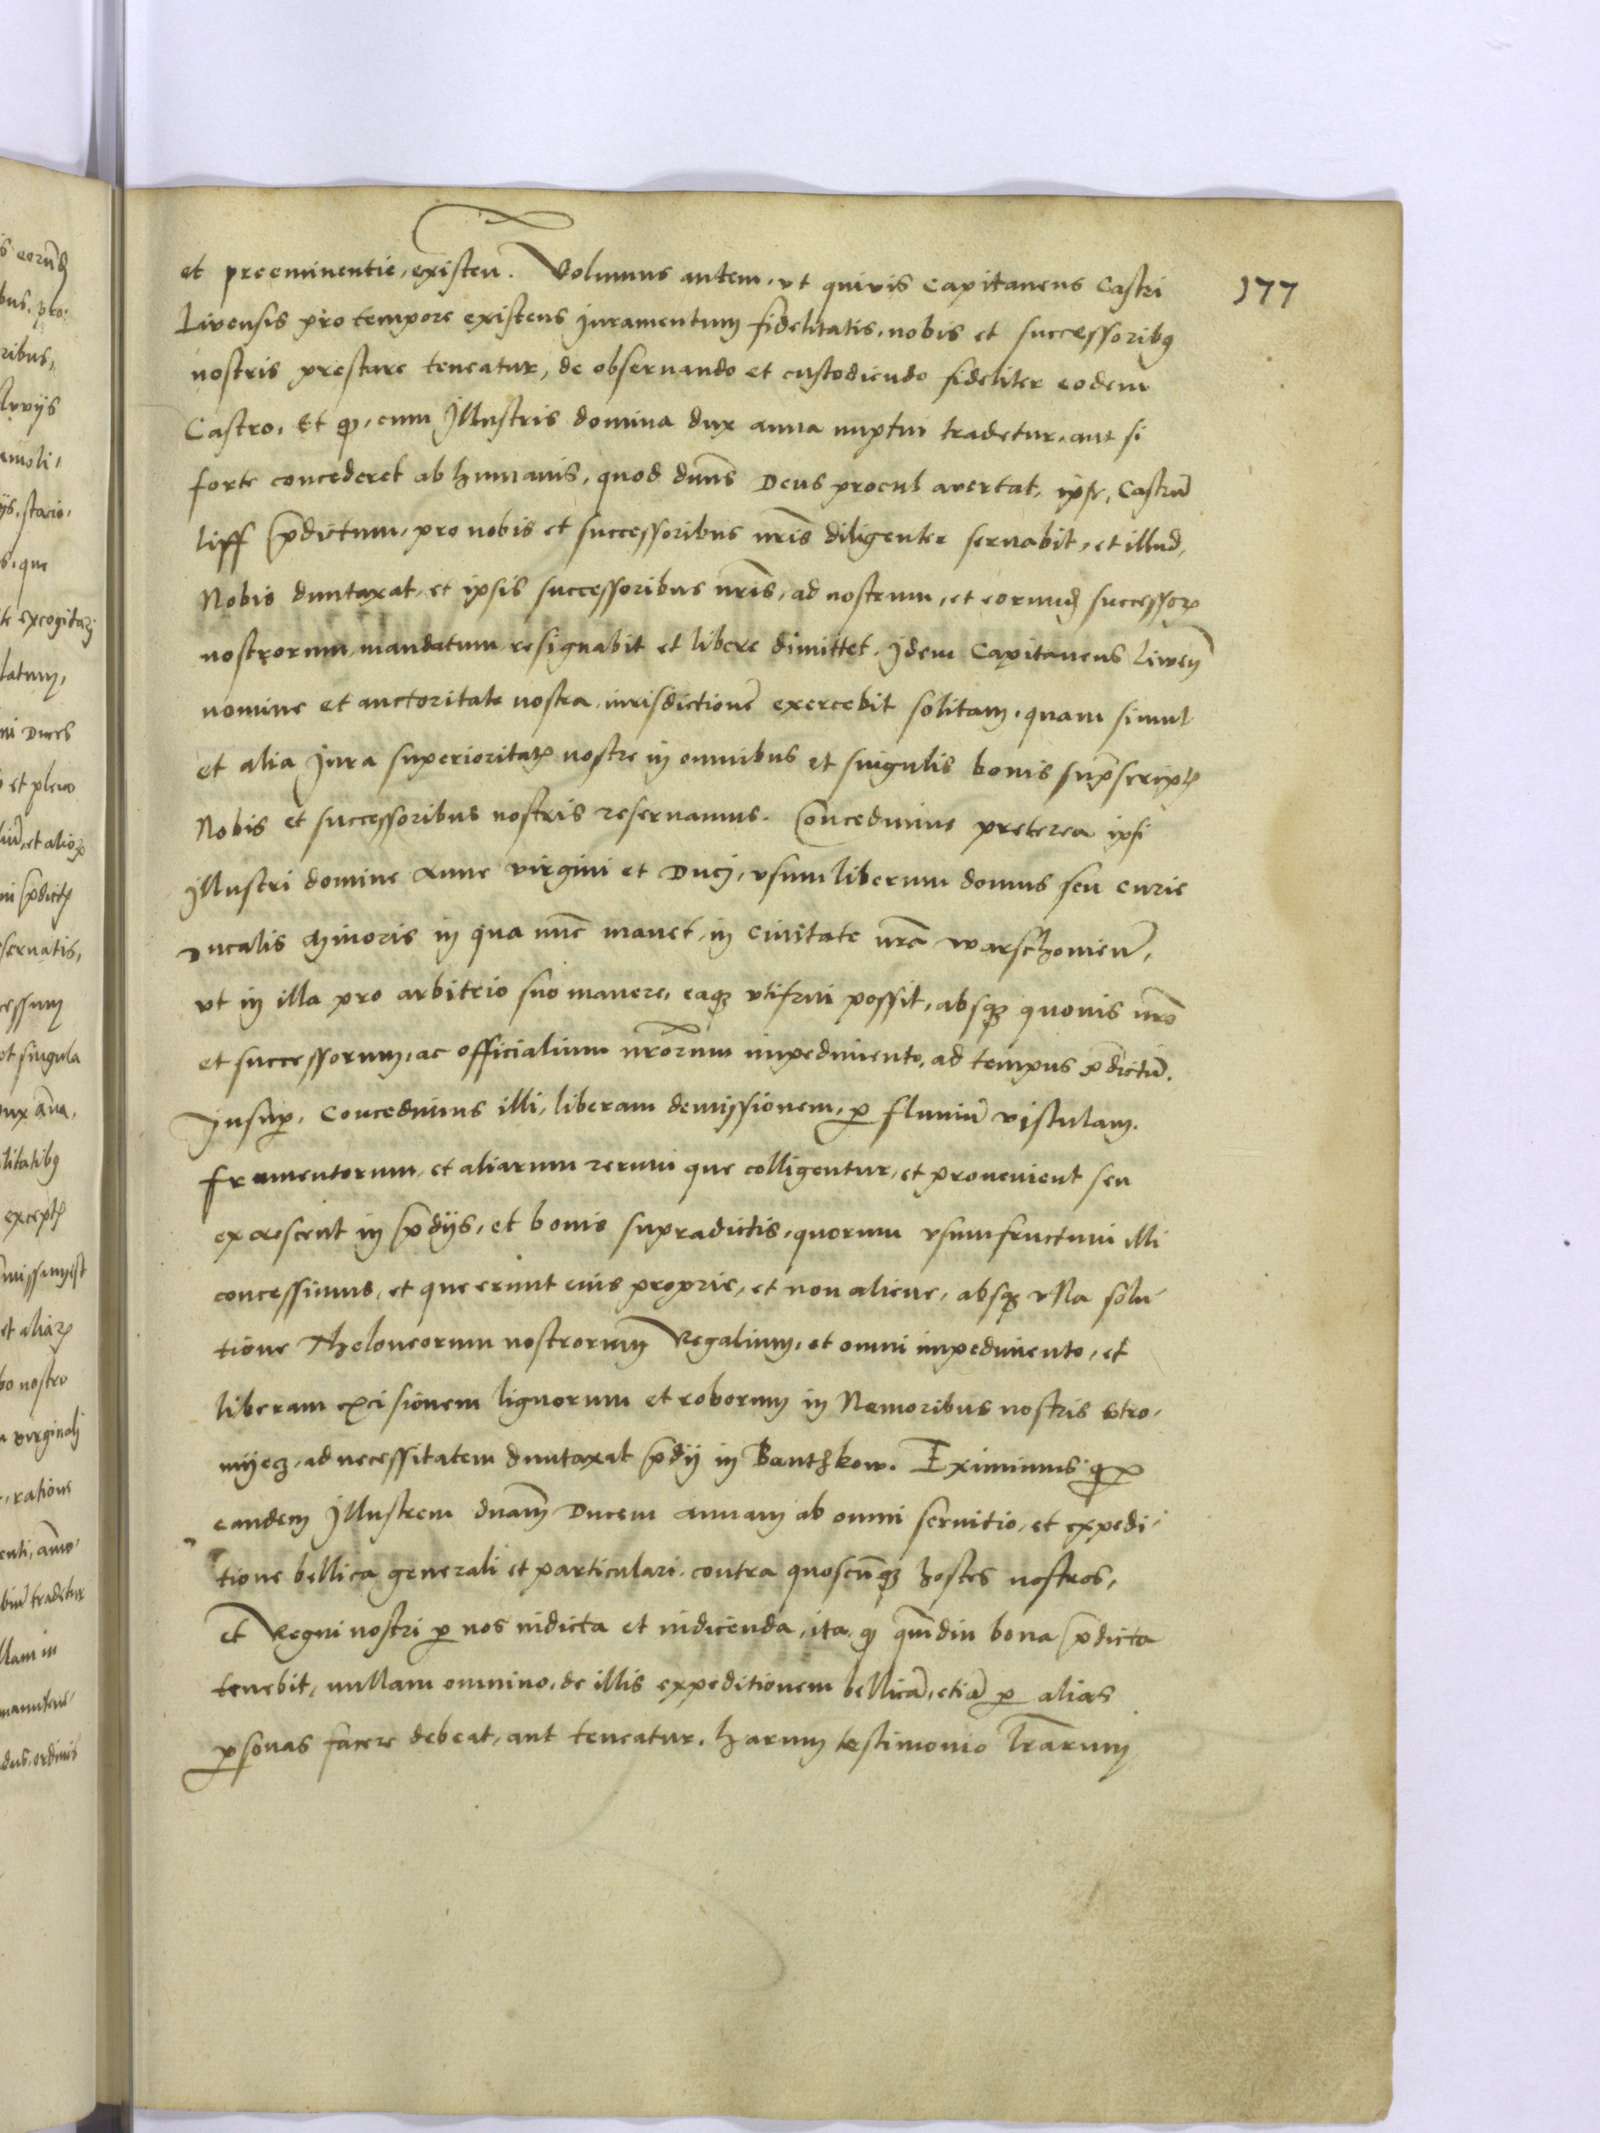 et preeminentie, existen̄. Volumus autem, vt quivis Capitaneus Castri
177
Livensis pro tempore existens Juramentum fidelitatis, nobis et successoribꝫ
nostris prestare teneatur, de observando et custodiendo fideliter eodem
Castro, Et ꝙ, cum Jllustris domina dux anna nuptui tradetur, aut si
forte concederet ab humanis, quod dūns Deus procul avertat, ipse, Castrū
liff p̄dictum, pro nobis et successoribus nr̄is diligenter servabit, et illud,
Nobis duntaxat, et ipsis successoribus nr̄is, ad nostrum, et eorund̄ successorꝝ
nostrorum, mandatum resignabit et libere dimittet. Jdem Capitaneus Liwen̄
nomine et auctoritate nostra, iurisdictionē exercebit solitam, quam simul
et alia Jura superioritatꝭ nostre in omnibus et singulis bonis suprascriptꝭ
Nobis et successoribus nostris reservamus. Concedimus preterea ipsi
Jllustri domine Anne virgini et Duci, vsum liberum domus seu curie
Ducalis Minoris in qua nūc manet, in civitate nr̄a warschovien̄,
vt in illa pro arbitrio suo manere, eaqꝫ vtifrui possit, absqꝫ quovis nr̄o
et successorum, ac officialium nr̄orum impedimento, ad tempus p̄dictū.
Jnsuꝑ, Concedimus illi, liberam demissionem, ꝑ fluviū vistulam,
frumentorum, et aliarum rerum que colligentur, et provenient seu
excrescent in p̄dijs, et bonis supradictis, quorum vsumfructum illi
concessimus, et que erunt eius proprie, et non aliene, absqꝫ vlla solu-
tione Theloneorum nostrorum Regalium, et omni impedimento, et
liberam excisionem lignorum et roborum in Nemoribus nostris stro-
myecz, ad necessitatem duntaxat p̄dij in Banthkow. Eximimus qꝫ
eandem Jllustrem dn̄am Ducem annam ab omni servitio, et expedi-
tione bellica generali et particulari, contra quoscūqꝫ hostes nostros,
et Regni nostri ꝑ nos indicta et indicenda, ita ꝙ qm̄diu bona p̄dicta
tenebit, nullam omnino, de illis expeditionem bellicā, etiā ꝑ alias
ꝑsonas facere debeat, aut teneatur. harum testimonio lr̄arum